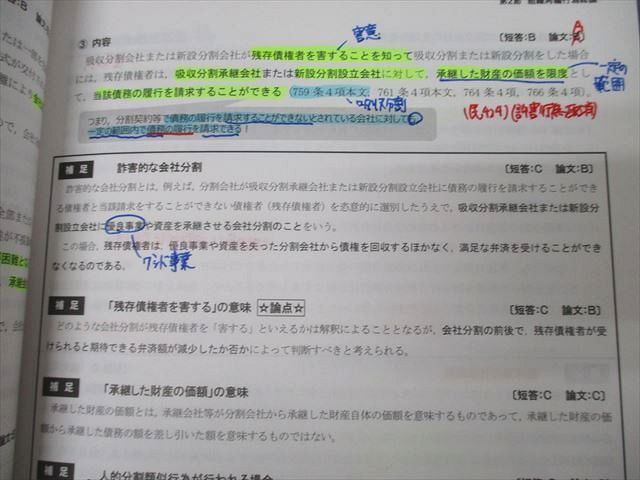 第2節 組織再編行為総論
③ 内容
〔短答:B 論文:B〕
A
害意
吸収分割会社または新設分割会社が残存債権者を害することを知って吸収分割または新設分割をした場合
には、残存債権者は、吸収分割承継会社または新設分割設立会社に対して、承継した財産の価額を限度とし
て、当該債務の履行を請求することができる（759条4項本文、761条4項本文、764条4項、
一定の
範囲
吸収分割
つまり、分割契約等で債務の履行を請求することができないとされている会社に対しても、
一定の範囲内で債務の履行を請求できる！
補足 詐害的な会社分割 〔短答:C 論文:B〕
詐害的な会社分割とは、例えば、分割会社が吸収分割承継会社または新設分割設立会社に債務の履行を請求することができ
る債権者と当該請求をすることができない債権者（残存債権者）を恣意的に選別したうえで、吸収分割承継会社または新設分
割設立会社に優良事業や資産を承継させる会社分割のことをいう。
この場合、残存債権者は、優良事業や資産を失った分割会社から債権を回収するほかなく、満足な弁済を受けることができ
なくなるのである。
補足 「残存債権者を害する」の意味 ☆論点☆ 〔短答:C 論文:B〕
どのような会社分割が残存債権者を「害する」といえるかは解釈によることとなるが、会社分割の前後で、残存債権者が受
けられると期待できる弁済額が減少したか否かによって判断すべきと考えられる。
補足 「承継した財産の価額」の意味 〔短答:C 論文:C〕
承継した財産の価額とは、承継会社等が分割会社から承継した財産自体の価額を意味するものであって、承継した財産の価
額から承継した債務の額を差し引いた額を意味するものではない。
補足 人的分割類似行為が行われる場合